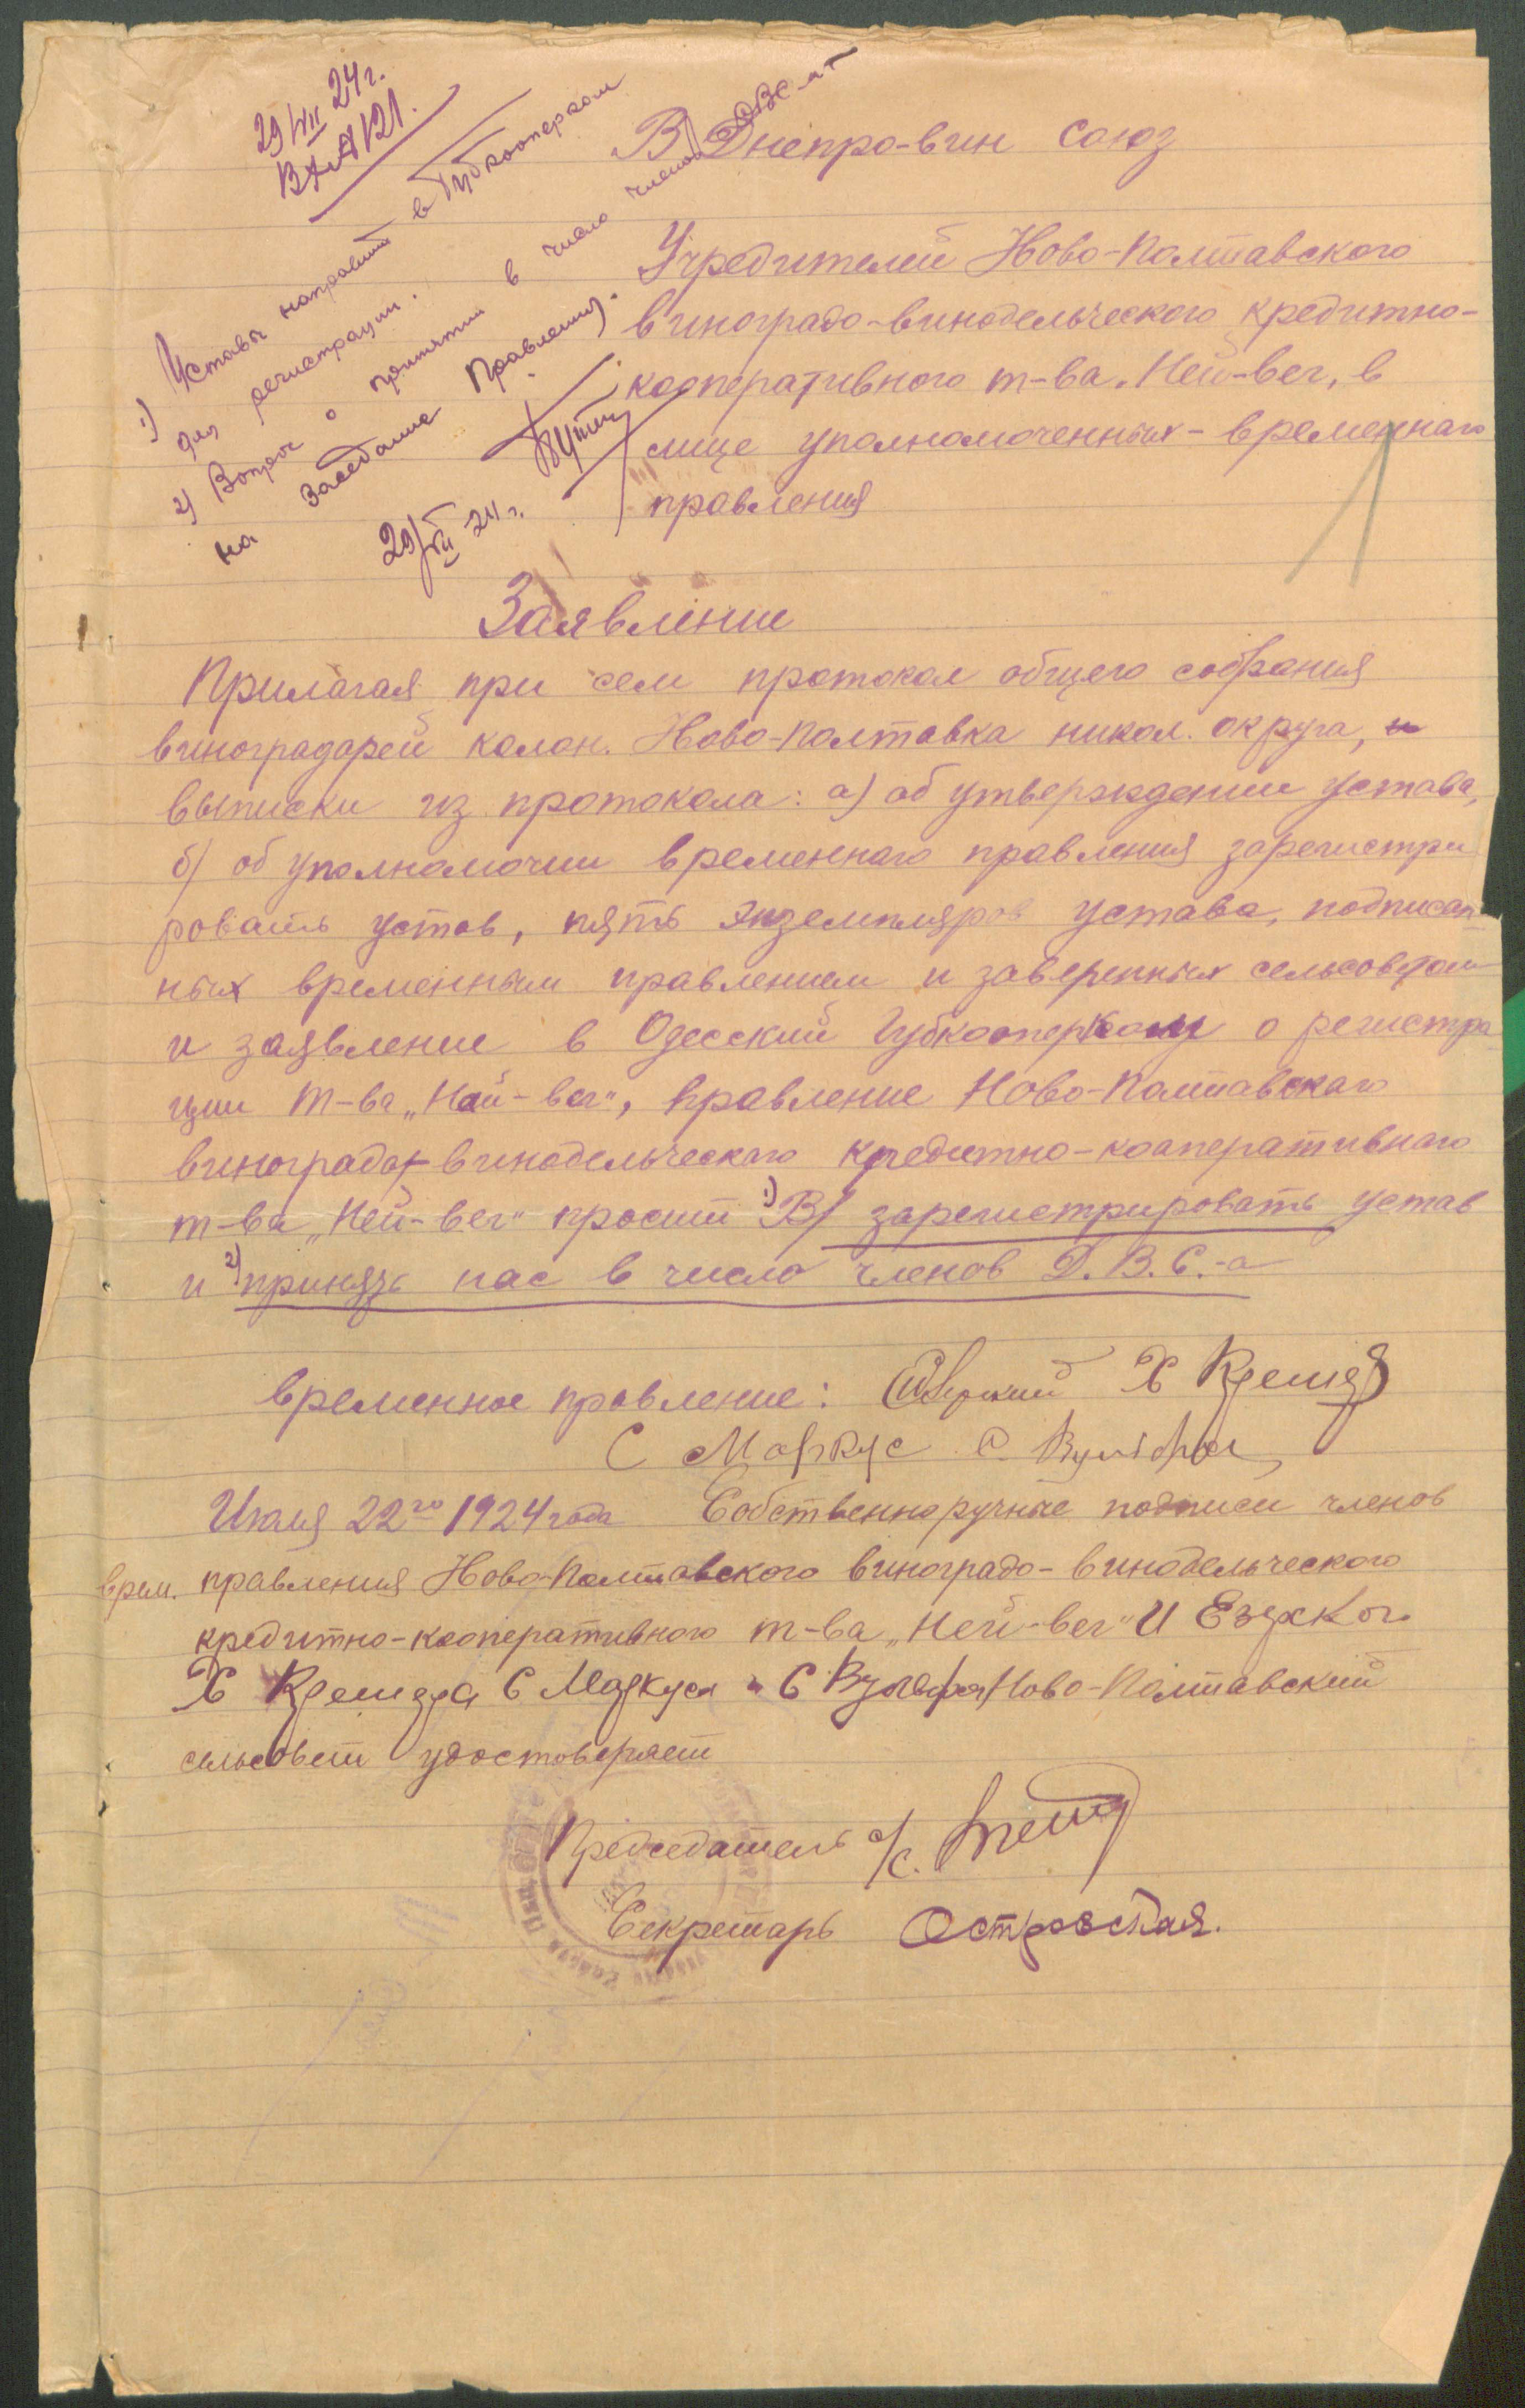 29/VII 24 г.
Вх. №121.
1) Уставы направить в Губкооперком
для регистрации.
2) Вопрос о принятии в число членов ДВС-а
на заседание Правления.
29/VII 24 г.
В Днепро-вин союз
Учредителей Ново-Полтавского
виноградо-винодельческого кредитно-
кооперативного т-ва „Ней-вег, в
лице уполномоченных - временнаго
правления
Заявление
Прилагая при сем протокол общего собрания
виноградарей колон. Ново-Полтавка никол. округа, и
выписки из протокола: а) об утверждении устава,
б) об уполномочии временнаго правления зарегистри
ровать устав, пять экземпляров устава, подписан-
ных временным правлением и заверенных сельсоветом
и заявление в Одесский Губкооперком о регистра
ции т-ва „Ней-вег", правление Ново-Полтавскаго
виноградо-винодельческаго кредитно-кооперативнаго
т-ва „Ней-вег" просит 1) В/ зарегистрировать устав
и 2) принять нас в число членов Д.В.С.-а
временное правление: Х Кремер
С Маркус С. Вульфов
Июля 22го 1924 года Собственноручные подписи членов
врем. правления Ново-Полтавского виноградо-винодельческого
кредитно-кооперативного т-ва „Ней-вег" И Езрского
Х Кремера С Маркуса и С Вульфова Ново-Полтавский
сельсовет удостоверяет
Председатель с/с.
Секретарь Островская.